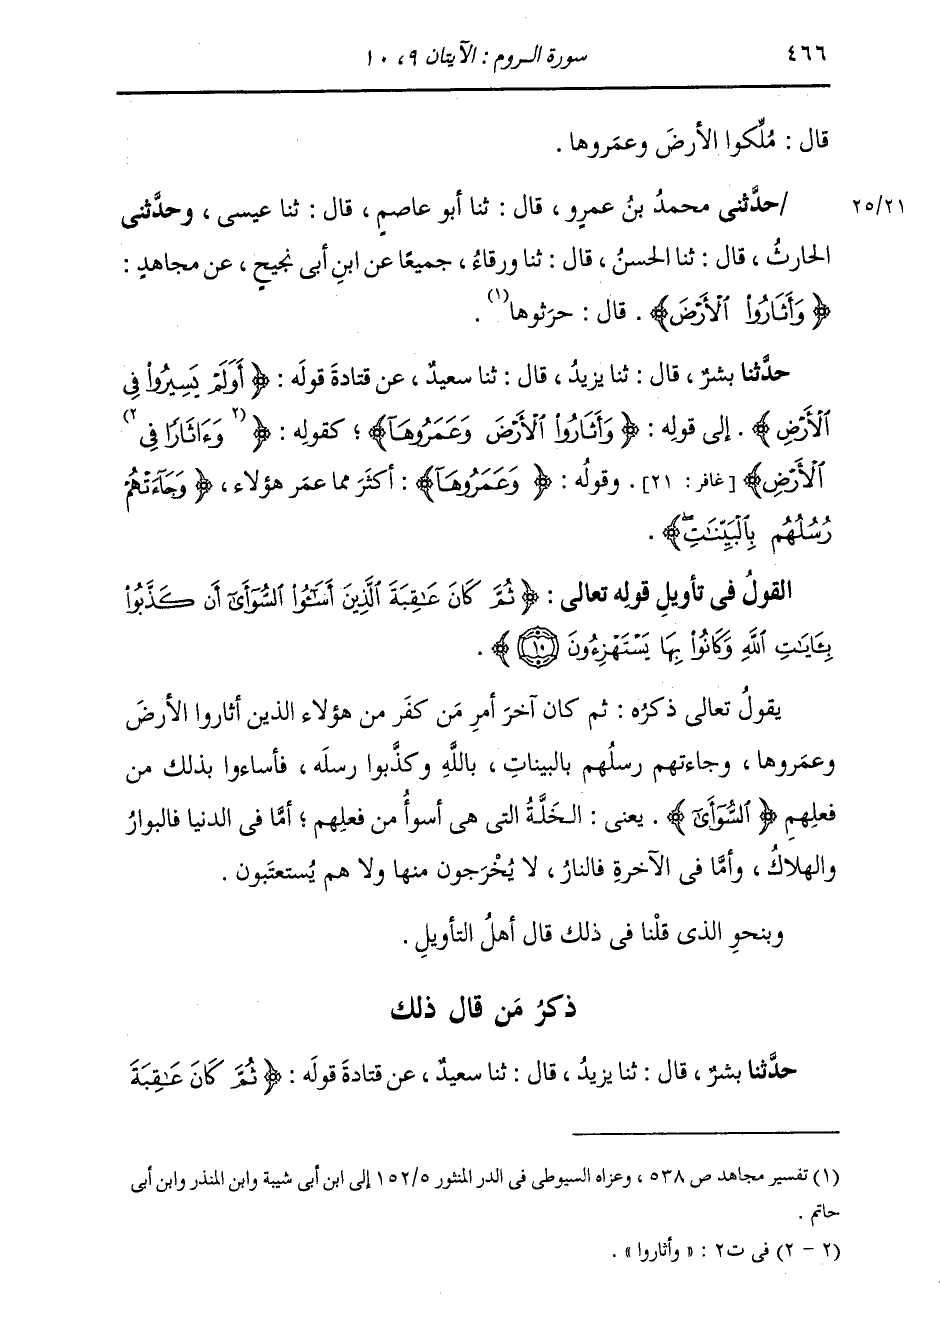 ٤٦٦ سورة الروم : الآيتان ٩، ١٠
قال : مُلِّكوا الأرضَ وعمَروها .
٢٥/٢١ /حدَّثنى محمدُ بنُ عمرٍو ، قال : ثنا أبو عاصمٍ ، قال : ثنا عيسى ، وحدَّثنى
الحارثُ ، قال : ثنا الحسنُ ، قال : ثنا ورقاءُ ، جميعًا عن ابنِ أبى نجيحٍ ، عن مجاهدٍ :
﴿ وَأَثَارُوا۟ ٱلْأَرْضَ ﴾ . قال : حرَثوها(١) .
حدَّثنا بشرٌ ، قال : ثنا يزيدُ ، قال : ثنا سعيدٌ ، عن قتادةَ قولَه : ﴿ أَوَلَمْ يَسِيرُوا۟ فِى
ٱلْأَرْضِ ﴾ . إلى قولِه : ﴿ وَأَثَارُوا۟ ٱلْأَرْضَ وَعَمَرُوهَآ ﴾ ؛ كقولِه : ﴿ (٢ وَءَاثَارًا فِى ٢)
ٱلْأَرْضِ ﴾ [ غافر : ٢١] . وقولُه : ﴿ وَعَمَرُوهَآ ﴾ : أكثرَ مما عمَر هؤلاء ، ﴿ وَجَآءَتْهُمْ
رُسُلُهُم بِٱلْبَيِّنَٰتِۖ ﴾ .
القولُ فى تأويلِ قولِه تعالى : ﴿ ثُمَّ كَانَ عَٰقِبَةَ ٱلَّذِينَ أَسَٰٓـُٔوا۟ ٱلسُّوٓأَىٰٓ أَن كَذَّبُوا۟
بِـَٔايَٰتِ ٱللَّهِ وَكَانُوا۟ بِهَا يَسْتَهْزِءُونَ ١٠ ﴾ .
يقولُ تعالى ذكرُه : ثم كان آخرَ أمرِ مَن كفَر من هؤلاء الذين أثاروا الأرضَ
وعمَروها ، وجاءتهم رسلُهم بالبيناتِ ، باللَّهِ وكذَّبوا رسلَه ، فأساءوا بذلك من
فعلِهم ﴿ ٱلسُّوٓأَىٰٓ ﴾ . يعنى : الخَلَّةُ التى هى أسوأُ من فعلِهم ؛ أمَّا فى الدنيا فالبوارُ
والهلاكُ ، وأمَّا فى الآخرةِ فالنارُ ، لا يُخْرَجون منها ولا هم يُستعتَبون .
وبنحوِ الذى قلْنا فى ذلك قال أهلُ التأويلِ .
ذكرُ مَن قال ذلك
حدَّثنا بشرٌ ، قال : ثنا يزيدُ ، قال : ثنا سعيدٌ ، عن قتادةَ قولَه : ﴿ ثُمَّ كَانَ عَٰقِبَةَ
(١) تفسير مجاهد ص ٥٣٨ ، وعزاه السيوطى فى الدر المنثور ١٥٢/٥ إلى ابن أبى شيبة وابن المنذر وابن أبى
حاتم .
(٢ – ٢) فى ت٢ : « وأثاروا » .